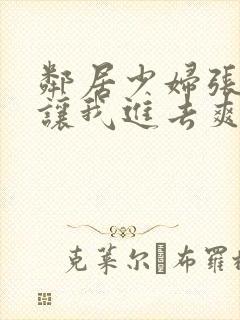 鄰居少婦張
讓我進去爽
克莱尔 布羅